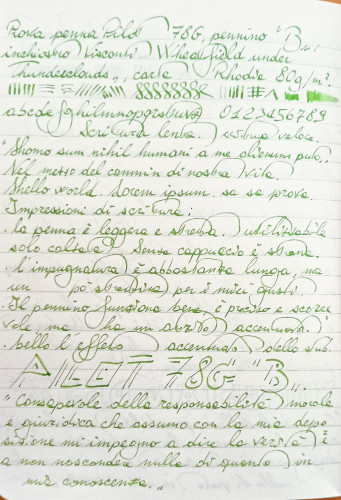 Prova penna Pilot 78G, pennino "B",
inchiostro Visconti Wheatfield under
Thunderclouds", carta Rhodia 80g/m².
abcdefghilmnopqrstuvz 0123456789
Scrittura lenta. veloce.
"Homo sum nihil humani a me alienum puto".
Nel mezzo del cammin di nostra vita.
Hello world. Lorem ipsum. sa sa prova.
Impressioni di scrittura:
. la penna è leggera e stretta. utilizzabile
solo calzata. Senza cappuccio è strana.
. l'impugnatura è abbastanza lunga, ma
un po' strettina per i miei gusti
. Il pennino funziona bene, è preciso e scorre
vole, ma ha un attrito accentuato.
. bello l'effetto accentuato dello sub.
PILOT 78G "B".
"Consapevole della responsabilità morale
e giuridica che assumo con la mia depo
sizione mi impegno a dire la verità e
a non nascondere nulla di quanto in
mia conoscenza."